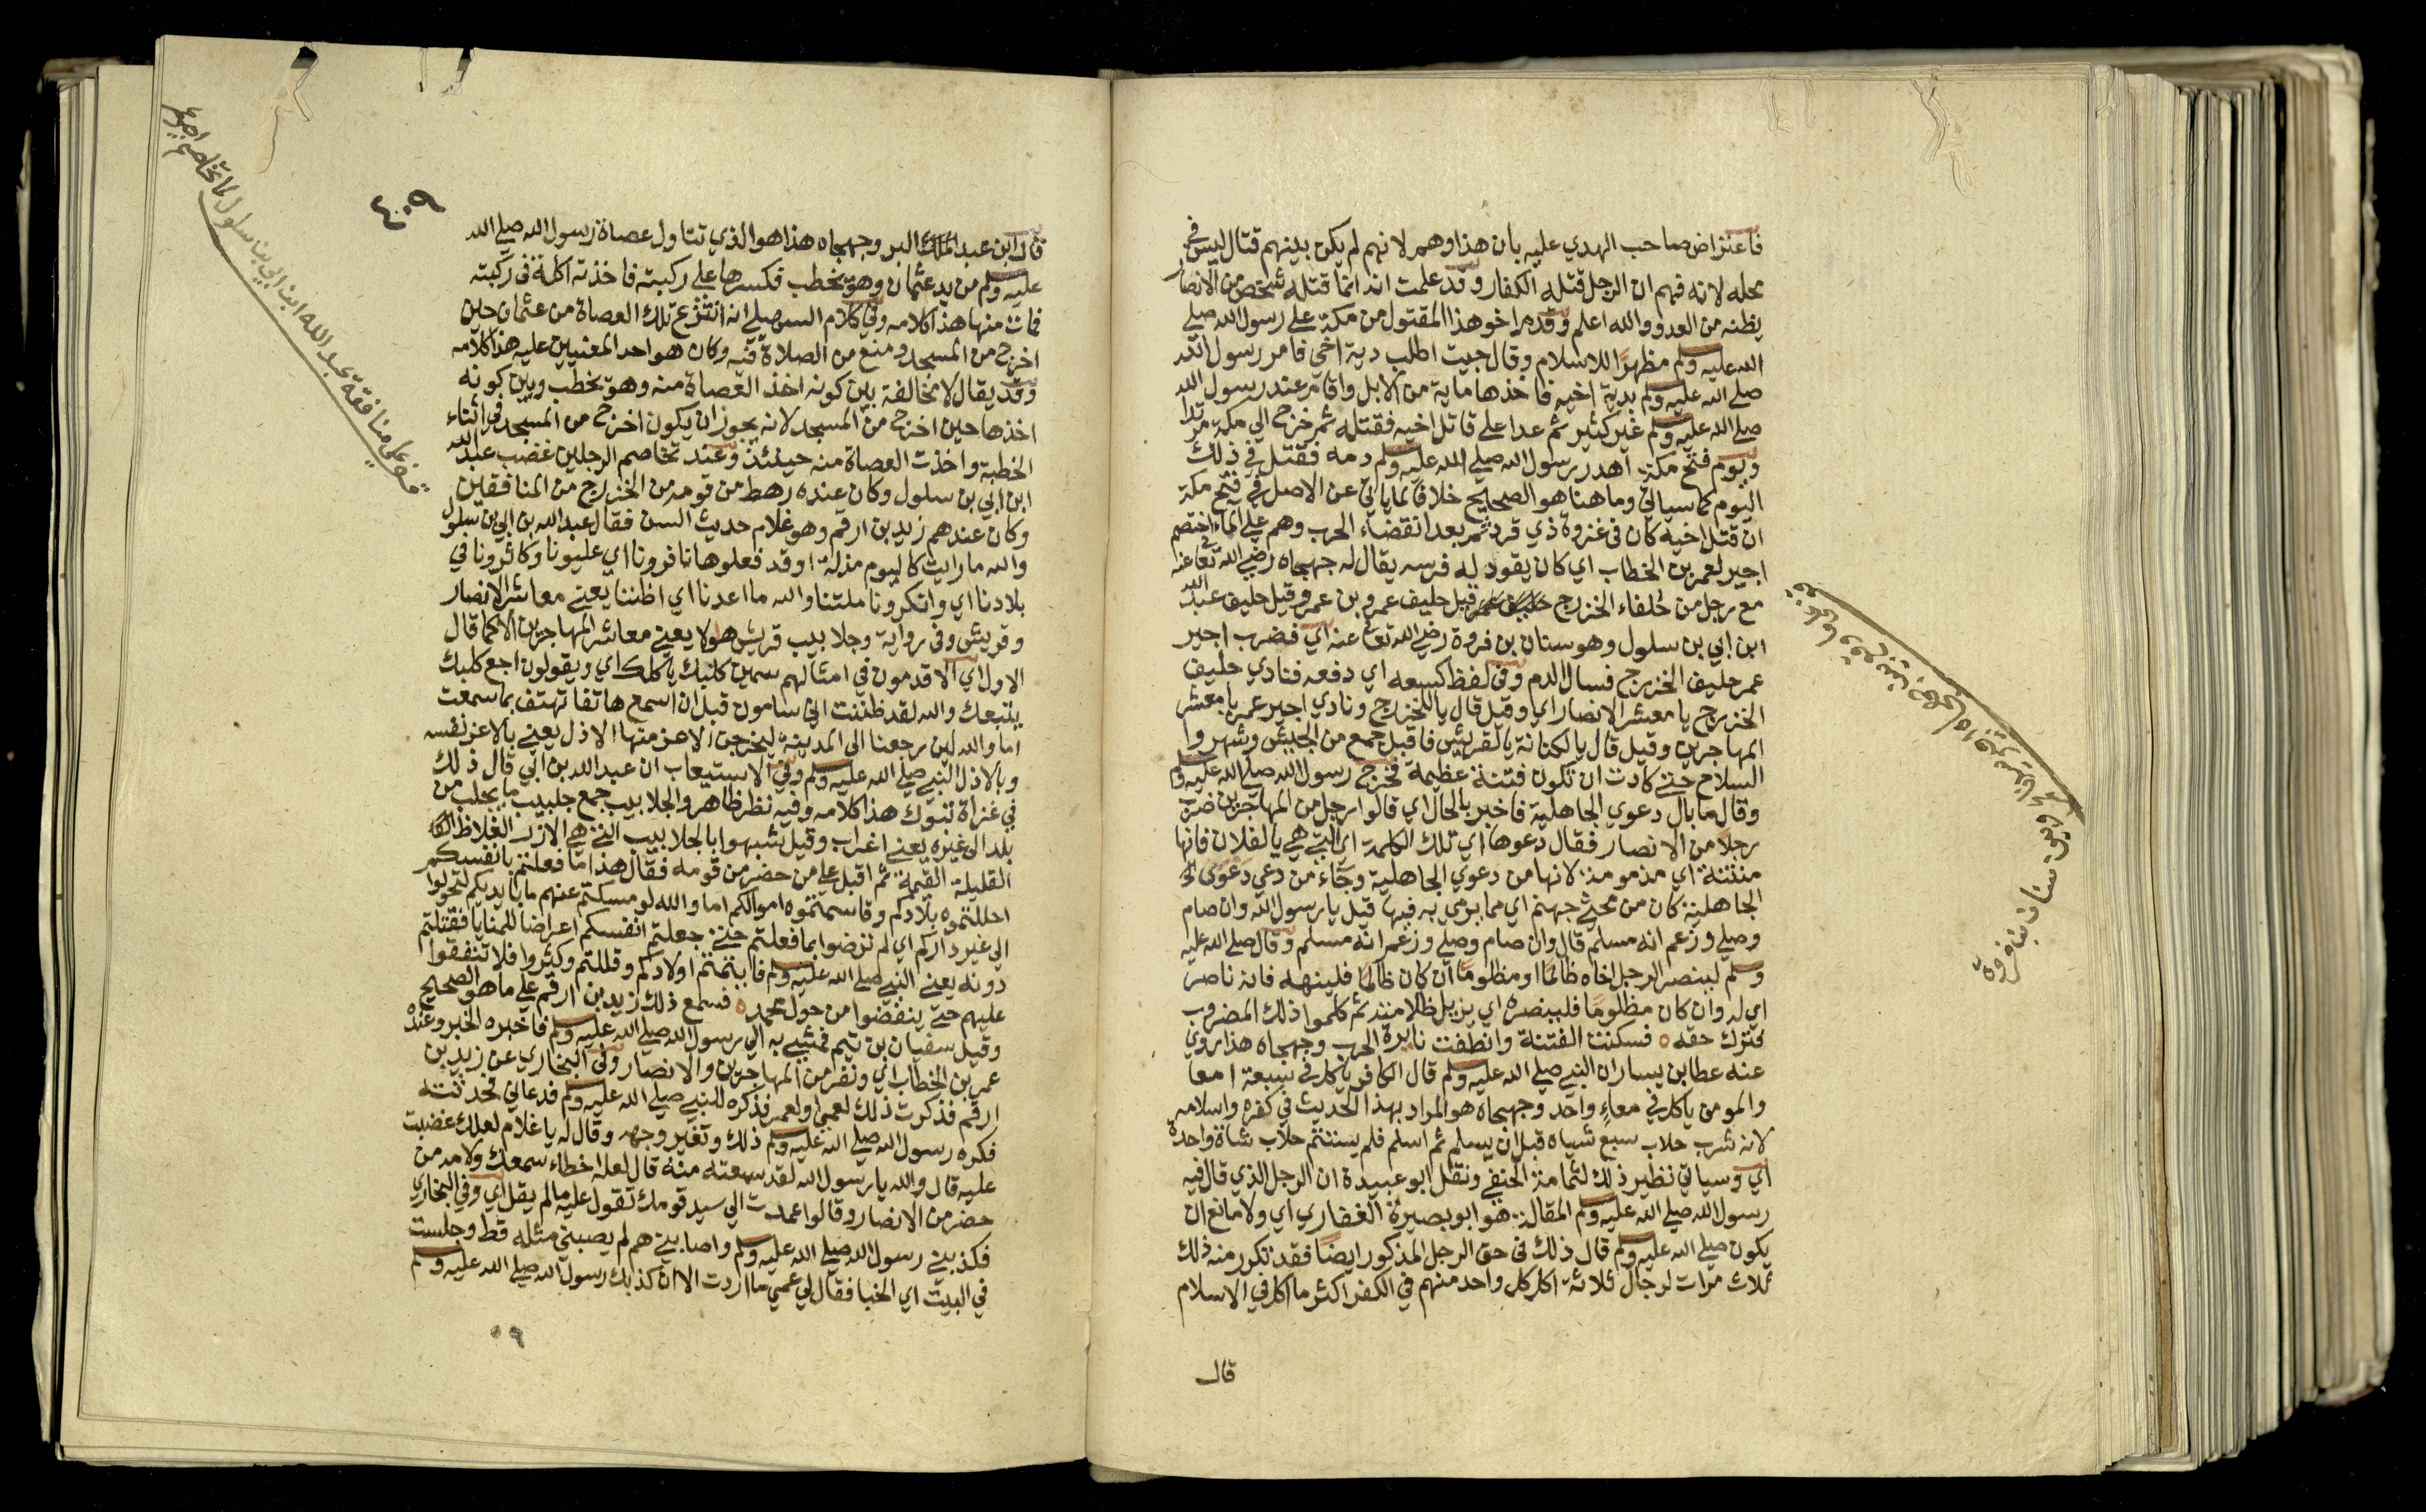 فاعتراض صاحب الهدي عليه بان هذا وهم لانهم لم يكن بينهم قتال ليس في
محله لانه فهم ان الرجل قتله الكفار وقد علمت انه انما قتله شخص من الانصار
يظنه من العدو والله اعلم وقدم اخو هذا المقتول من مكة على رسول الله صلي
الله عليه وسلم مظهرًا للاسلام وقال جيت اطلب دية اخي فامر رسول الله
صلي الله عليه وسلم بدية اخيه فاخذها ماية من الابل واقام عند رسول الله
صلي الله عليه وسلم غير كثير ثم عدا على قاتل اخيه فقتله ثم خرج الي مكة مرتدا
ويوم فتح مكة اهدر رسول الله صلي الله عليه وسلم دمه فقتل في ذلك
اليوم كما سياتي وما هنا هو الصحيح خلافا لما ياتي عن الاصل في فتح مكة
ان قتل اخيه كان في غزوة ذي قرد ثم بعد انقضاء الحرب وهم علي الماء اختصم
اجير لعمر بن الخطاب اي كان يقود له فرسه يقال له جهجاه رضي الله تعالى عنه
مع رجل من حُلفاء الخزرج قيل حليف عمرو بن عمرو قيل حليف عبد الله
ابن ابي بن سلول وهو سنان بن فروة رضي الله تعالى عنه اي فضرب اجير
عمر حليف الخزرج فسال الدم وفي لفظ كسعه اي دفعه فنادي حليف
الخزرج يا معشر الانصار اي وقيل قال يا للخزرج ونادي اجير عمر يا معشر
المهاجرين وقيل قال يا لكنانة يا لقريش فاقبل جمع من الجيش وشهروا
السلاح حتي كادت ان تكون فتنة عظيمة فخرج رسول الله صلي الله عليه وسلم
وقال ما بال دعوي الجاهلية فاخبر بالحال اي قالوا رجل من المهاجرين ضرب
رجلا من الانصار فقال دعوها اي تلك الكلمة اي التي هي يا لفلان فانها
منتنة اي مذمومة لانها من دعوي الجاهلية وجاء من دعي دعوي
الجاهلية كان من محثي جهنم اي مما يرمي به فيها قيل يا رسول الله وان صام
وصلي وزعم انه مسلم قال وان صام وصلي وزعم انه مسلم وقال صلي الله عليه
وسلم لينصر الرجل اخاه ظالمًا او مظلومًا ان كان ظالمًا فلينهه فانه ناصر
اي له وان كان مظلومًا فلينصره اي يزيل ظلامته ثم كلموا ذلك المضروب
فترك حقه ٥ فسكنت الفتنة وانطفت نايرة الحرب وجهجاه هذا روي
عنه عطا بن يسار ان النبي صلي الله عليه وسلم قال الكافر ياكل في سبعة امعا
والمومن ياكل في معاءٍ واحد وجهجاه هو المراد بهذا الحديث في كفره واسلامه
لانه شرب حلاب سبع شياه قبل ان يسلم ثم اسلم فلم يستتم حلاب شاة واحدة
اي وسياتي نظير ذلك لثمامة الحنفي ونقل ابو عبيدة ان الرجل الذي قال فيه
رسول الله صلي الله عليه وسلم المقالة هو ابو بصيرة الغفاري اي ولا مانع ان
يكون صلي الله عليه وسلم قال ذلك في حق الرجل المذكور ايضًا فقد تكرر منه ذلك
ثلاث مرات لرجال ثلاثة اكل كل واحد منهم في الكفر اكثر ما اكل في الاسلام
قال
سنان بن فروة
٤٠٩
قال ابن عبد البر وجهجاه هذا هو الذي تناول عصاة رسول الله صلي الله
عليه وسلم من يد عثمان وهو يخطب فكسرها علي ركبته فاخذته اكلة في ركبته
فمات منها هذا كلامه وفي كلام السهيلي انه انتزع تلك العصاة من عثمان حين
اخرج من المسجد ومنع من الصلاة فيه وكان هو احد المعينين عليه هذا كلامه
وقد يقال لا مخالفة بين كونه اخذ العصاة منه وهو يخطب وبين كونه
اخذها حين اخرج من المسجد لانه يجوز ان يكون اخرج من المسجد في اثناء
الخطبة واخذت العصاة منه حينئذ وعند تخاصم الرجلين غضب عبد الله
ابن ابي بن سلول وكان عنده رهط من قومه من الخزرج من المنافقين
وكان عندهم زيد بن ارقم وهو غلام حديث السن فقال عبد الله بن ابي بن سلول
والله ما رايت كاليوم مذلة اوقد فعلوها نافرونا اي غلبونا وكاثرونا في
بلادنا اي وانكرونا ملتنا والله ما اعدنا اي اظننا يعني معاشر الانصار
وقريش وفي رواية وجلابيب قريش هولا يعني معاشر المهاجرين الا كما قال
الاول اي الاقدمون في امثالهم سمن كلبك ياكلك اي ويقولون اجع كلبك
يتبعك والله لقد ظننت اني ساموت قبل ان اسمع هاتفا تهتف بما سمعت
اما والله لين رجعنا الى المدينة ليخرجن الاعز منها الاذل يعني بالاعز نفسه
وبالاذل النبي صلي الله عليه وسلم وفي الاستيعاب ان عبد الله بن ابي قال ذلك
في غزاة تبوك هذا كلامه وفيه نظر ظاهر والجلابيب جمع جلبيب ما يجلب من
بلد الى غيره يعني اغراب وقيل شبهوا بالجلابيب التي هي الازر الغلاظ
القليلة القيمة ثم اقبل علي من حضر من قومه فقال هذا ما فعلتم بانفسكم
احللتموه بلادكم وقاسمتموه اموالكم اما والله لو مسكتم عنهم ما بايديكم لتحولوا
الي غير داركم اي لم ترضوا بما فعلتم حتي جعلتم انفسكم اعراضا للمنايا فقتلتم
دونه يعني النبي صلي الله عليه وسلم فايتمتم اولادكم وقللتم وكثروا فلا تنفقوا
عليهم حتي ينفضوا من حول محمد ٥ فسمع ذلك زيد بن ارقم علي ما هو الصحيح
وقيل سفيان بن تيم فمشي به الي رسول الله صلي الله عليه وسلم فاخبره الخبر وعنده
عمر بن الخطاب اي ونفر من المهاجرين والانصار وفي البخاري عن زيد بن
ارقم فذكرت ذلك لعمي او لعمر فذكره للنبي صلي الله عليه وسلم فدعاني فحدثته
فكره رسول الله صلي الله عليه وسلم ذلك وتغير وجهه وقال له يا غلام لعلك غضبت
عليه قال والله يا رسول الله لقد سمعته منه قال لعله اخطاء سمعك ولامه من
حضر من الانصار وقالوا عمدت الي سيد قومك تقول عليه ما لم يقل اي وفي البخاري
فكذبني رسول الله صلي الله عليه وسلم واصابني هم لم يصبني مثله قط وجلست
في البيت اي الخبا فقال لي عمي ما اردت الا ان كذبك رسول الله صلي الله عليه وسلم
علي منافقة عبد الله ابن ابي بن سلول